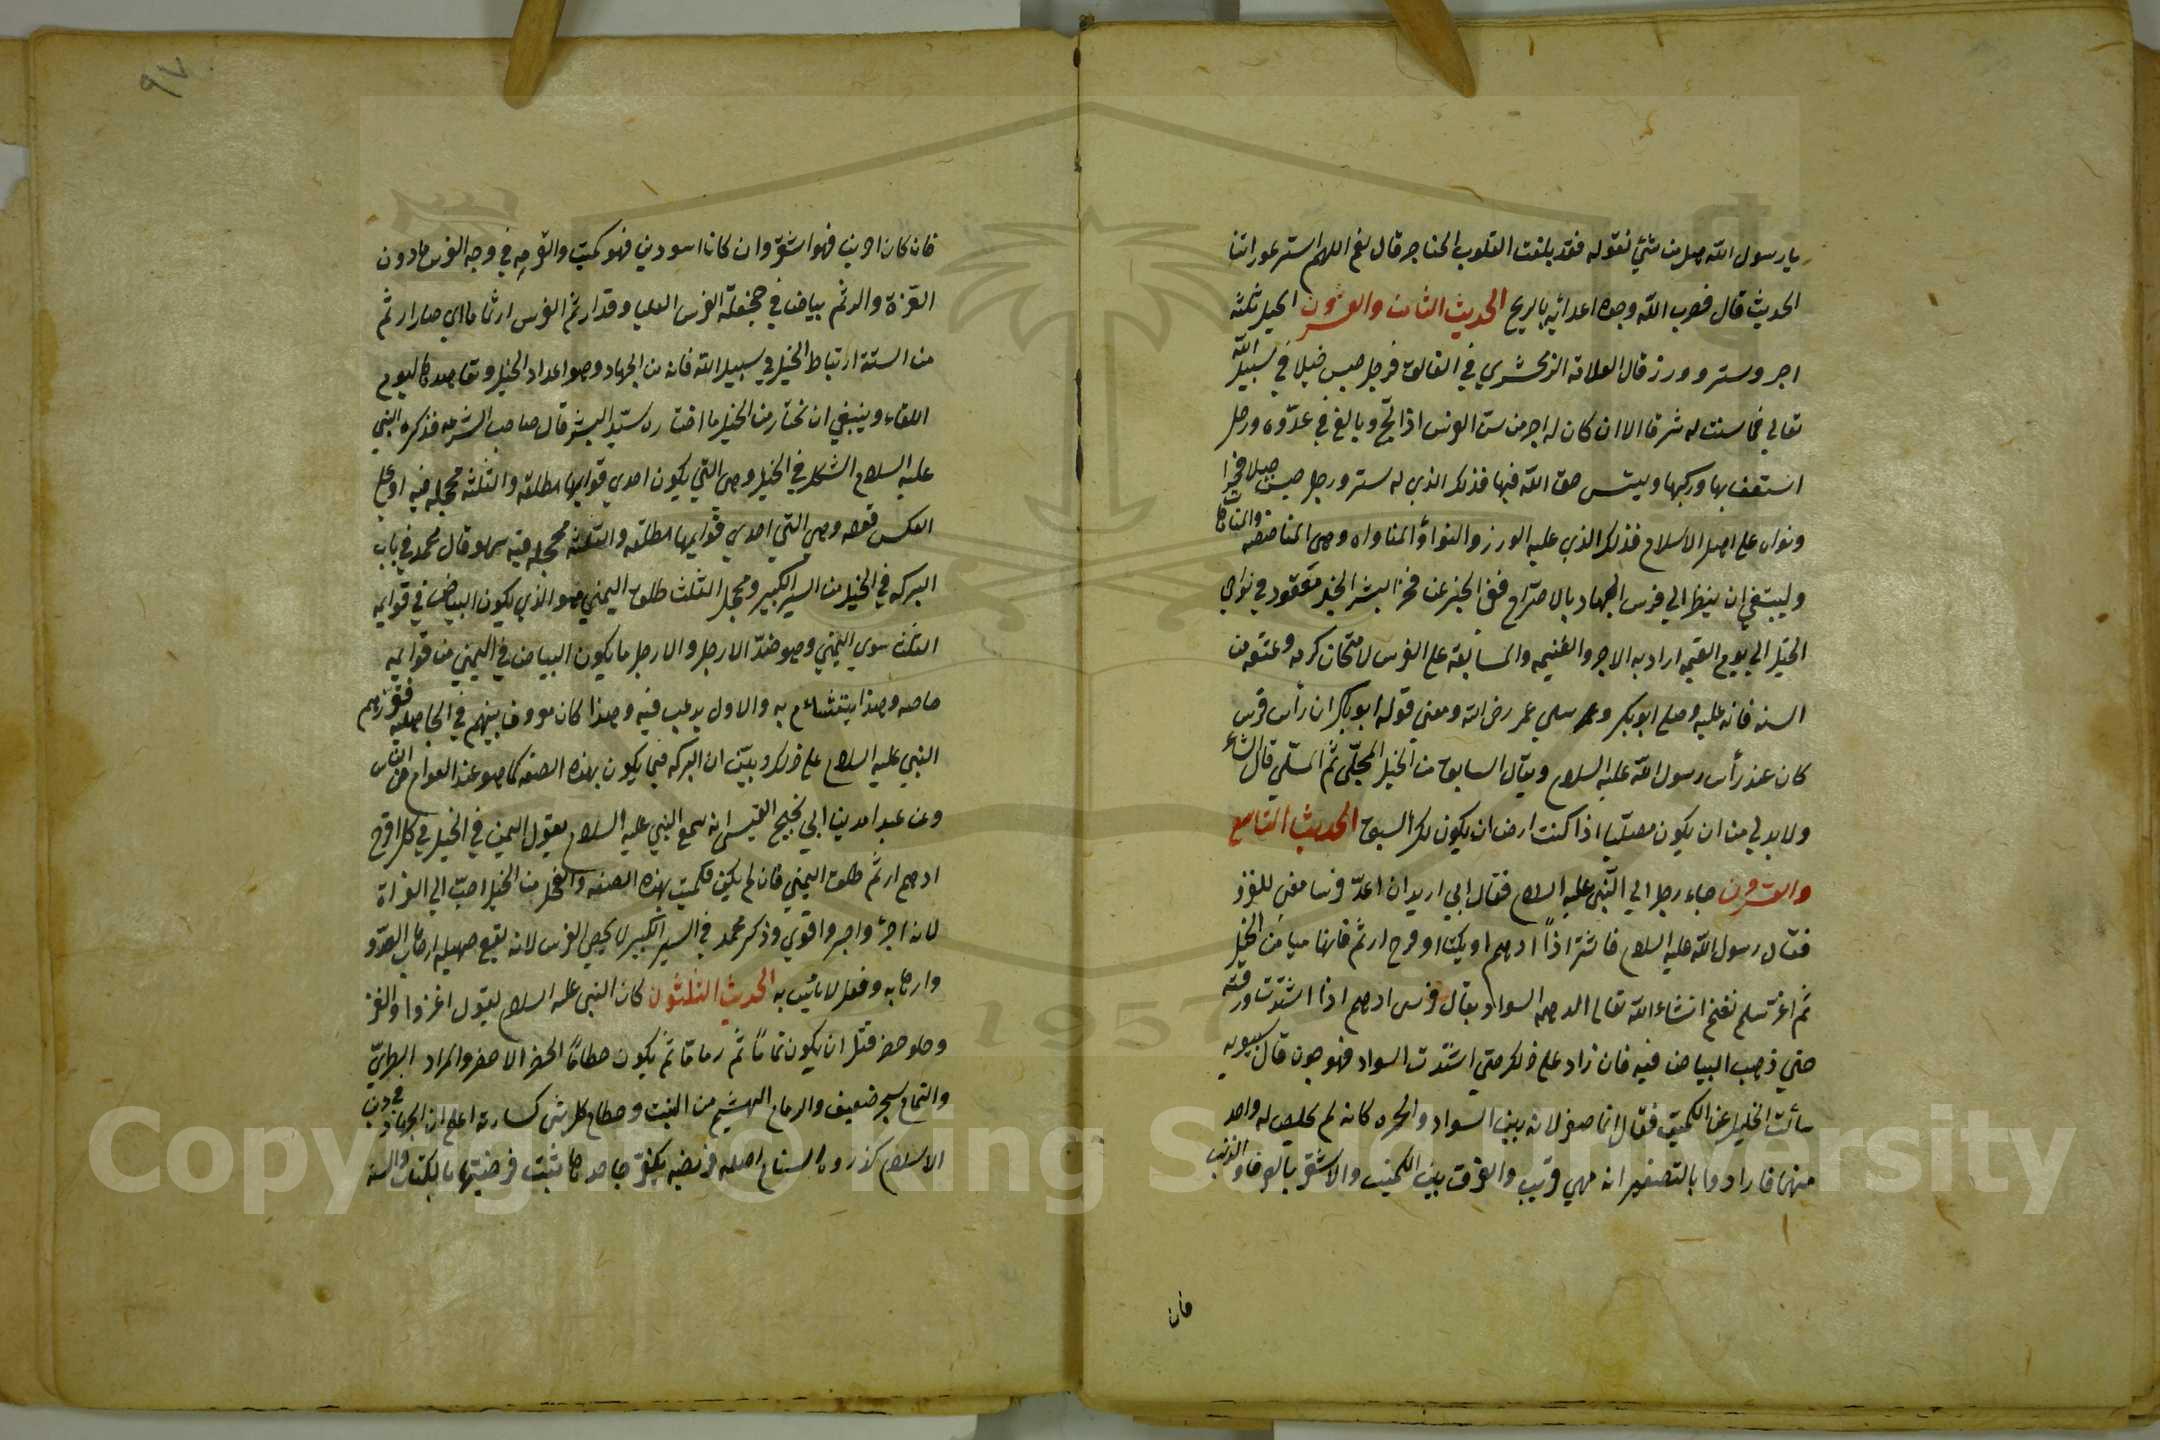 يا رسول الله هل من شئ نقوله فقد بلغت القلوب الحناجر قال نعم اللهم استر عوراتنا
الحديث قال فضرب الله وجوه اعدائه بالريح الحديث الثامن والعشرون الخيل ثلثة
اجر وستر ووزر قال العلامة الزمخشري في الفائق فرجل حبس خيلا في سبيل الله
تعالي فما سنت له شرفا الا ان كان له اجر من سن الفرس اذا لج وبالغ في عدوه ورجل
استعف بها وركبها ولم ينس حق الله فيها فذلك الذي له ستر ورجل حبس خيلا فخرا
ونواء علي اهل الاسلام فذلك الذي عليه الوزر والنواء المناواه وهي المناهضه
وليبتغي ان ينظر الي فرس الجهاد بالاحترام ففي الخبر عن فخر البشر الخيل معقود في نواصي
الخيل الي يوم القيمه اراد به الاجر والغنيمه والمسابقة علي الفرس لامتحان كرمه وعتقه من
السنه فانه عليه وصلي ابو بكر وعمر رضي الله ومعني قوله ابو بكر ان رأس فرس
كان عند رأس رسول الله عليه السلام ويقال السابق من الخيل المجلّي ثم المصلّي قال الشاعر
ولا بد لي من ان يكون مصليا اذا كنت ارضي ان يكون لك السبق الحديث التاسع
والعشرون جاء رجل الي النبي عليه السلام فقال اني اريد ان اعدّ فرسا للغزو
فقال رسول الله عليه السلام فاشتر اذاً ادهم او كميتا اقرح ارثم فانها ميامن الخيل
ثم اغز تسلم تغنم ان شاء الله تعالي الدهمه السواد يقال فرس ادهم اذا اشتدت ورقته
حتي ذهب البياض فيه فان زاد علي ذلك حتي اشتدت السواد فهو جون قال سيبويه
سألت الخليل عن الكميت فقال انما صغر لانه بين السواد والحمره كانه لم يخلص له واحد
منهما فارادوا بالتصغير انه منهما قريب والفرق بين الكميت والاشقر بالعرف والذنب
فان
٩٧
فان كان احمرين فهو اشقر وان كانا اسودين فهو كميت والقرحه في وجه الفرس ما دون
الغزة والرثم بياض في جحفلة الفرس العليا وقد ارثم الفرس ارثماما اي صار ارثم
من السنة ارتباط الخيل في سبيل الله فانه من الجهاد وهو اعداد الخيل وتعاهدها ليوم
اللقاء وينبغي ان نختار من الخيل ما اختاره سيد البشر قال صاحب الشرعه فذكره النبي
عليه السلام الشكل في الخيل وهي التي يكون احدي قوايمها مطلقه والثلثه محجله فيه او علي
العكس وهي التي احدي قوايمها مطلقه والثلثه محجله وقال محمد في باب
البركه في الخيل من السير الكبير ومحجل الثلث طلق اليمني هو الذي يكون البياض في قوايمه
الثلث سوي اليمني وهو ضدّ الارجل والارجل ما يكون البياض في اليمني من قوايمه
خاصه وهذا يتشاءم به والاول يرغب فيه وهذا كان معروفا بينهم في الجاهلية فقررهم
النبي عليه السلام علي ذلك وبيّن ان البركه فيما يكون بهذه الصفه كما هو عند العوام من الناس
وعن عبد الله بن ابي نجيح القيسي انه سمع النبي عليه السلام يقول اليمن في الخيل في كل اقرح
ادهم ارثم طلق اليمني فان لم يكن فكميت بهذه الصفه والفحل من الخيل احبّ الي الغزاة
لانه اجرأ واجسر واقوي وذكر محمد في السير الكبير لا يخصي الفرس لانه يقع صهيله ارهاب العدو
وارهابه وفعل لا باس به الحديث الثلثون كان النبي عليه السلام يقول اغزوا والغزو
وحلو خضر قبل ان يكون ثماماً ثم رماما ثم يكون حطاماً الخضر الاخضر والمراد الطري
والثمام شجر ضعيف والرمام الهشيم من النبت وحطام كل شئ كسارته اعلم ان الجهاد في دين
الاسلام كذروة السنام اصله فريضه يكفر جاحدها ثبت فرضيتها بالكتاب والسنه